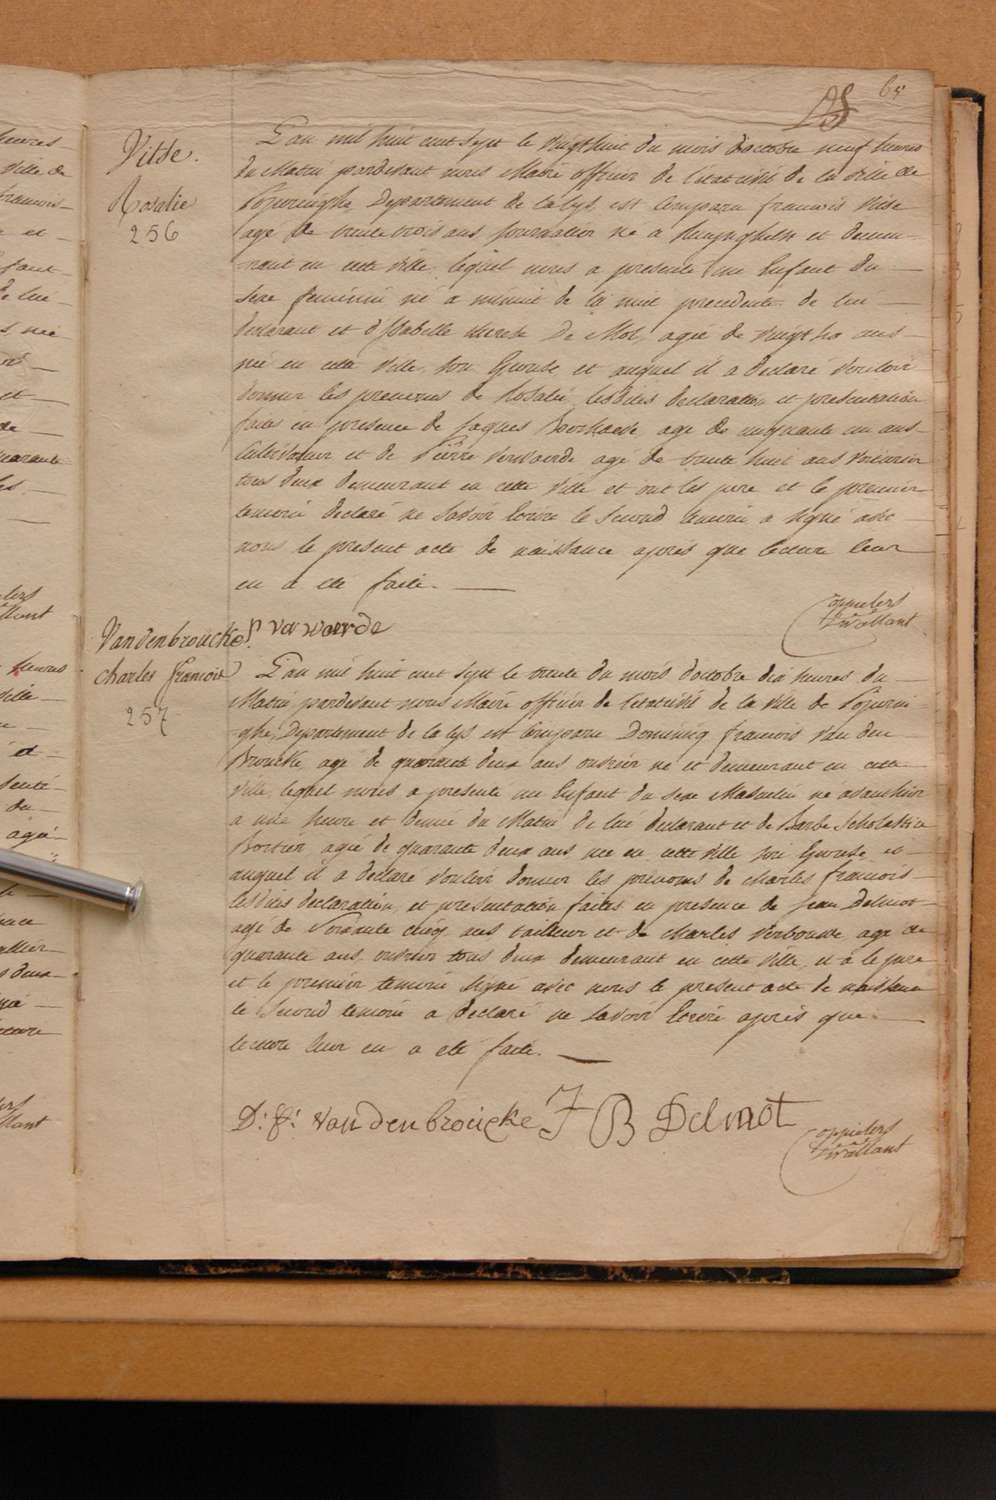 65
Vitse.
Rosalie
256
L'an mil huit cent sept le vingt huit du mois d'octobre neuf heures
du Matin pardevant nous Maire officier de l'etat civil de la ville de
Poperinghe Departement de la lys, est comparu francois Vitse
agé de trente trois ans journalier né a et demeu-
rant en cette ville, lequel nous a presenté un Enfant du
sexe feminin né a minuit de la nuit precedente de lui
declarant et d'Isabelle therese De Mol, agée de vingt six ans
née en cette ville, son Epouse et auquel il a declaré vouloir
donner les prenoms de Rosalie, lesdites declaration et presentation
faites en presence de Jaques agé de cinquante un ans
Cultivateur et de Pierre Verwaerde agé de trente huit ans
tous deux demeurant en cette ville et ont les pere et le premier
temoin declaré ne savoir Ecrire le second temoin a signé avec
nous le present acte de naissance après que lecture leur
en a eté faite.
P. verwaerde
Coppieters
t'wallant
Vandenbroucke
charles francois
257
L'an mil huit cent sept le trente du mois d'octobre dix heures du
Matin pardevant nous Maire officier de l'etat civil de la ville de Poperin-
ghe, Departement de la lys est comparu Dominiq francois Van den
Broucke, agé de quarante deux ans ouvrier né et demeurant en cette
ville, lequel nous a presenté un Enfant du sexe Masculin né avanthier
a une heure et demie du Matin de lui declarant et de Barbe Scholastica
Bortier agée de quarante deux ans née en cette ville son Epouse et
auquel il a declaré vouloir donner les prenoms de charles francois
lesdites declaration, et presentation faites en presence de Jean Delmot
agé de soixante cinq ans tailleur et de charles Verbouwe agé de
quarante ans ouvrier tous deux demeurant en cette ville, et a le pere
et le premier temoin signé avec nous le present acte de naissance
le second temoin a declaré ne savoir Ecrire après que
lecture leur en a eté faite.
D: F: van den broucke J B Delmot
Coppieters
t'wallant